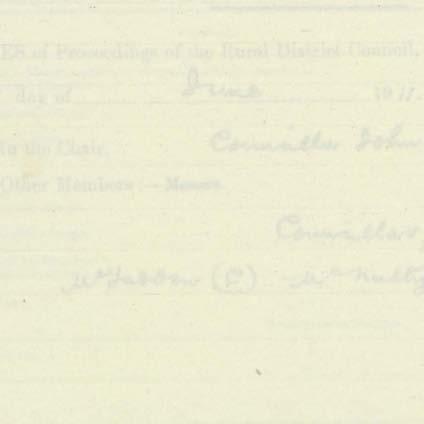 ES of Proceedings of the Rural District Council,
day of June 1911.
In the Chair. Councillor John
Other Members :— Messrs.
Councillors,
McFadden (C) McNulty